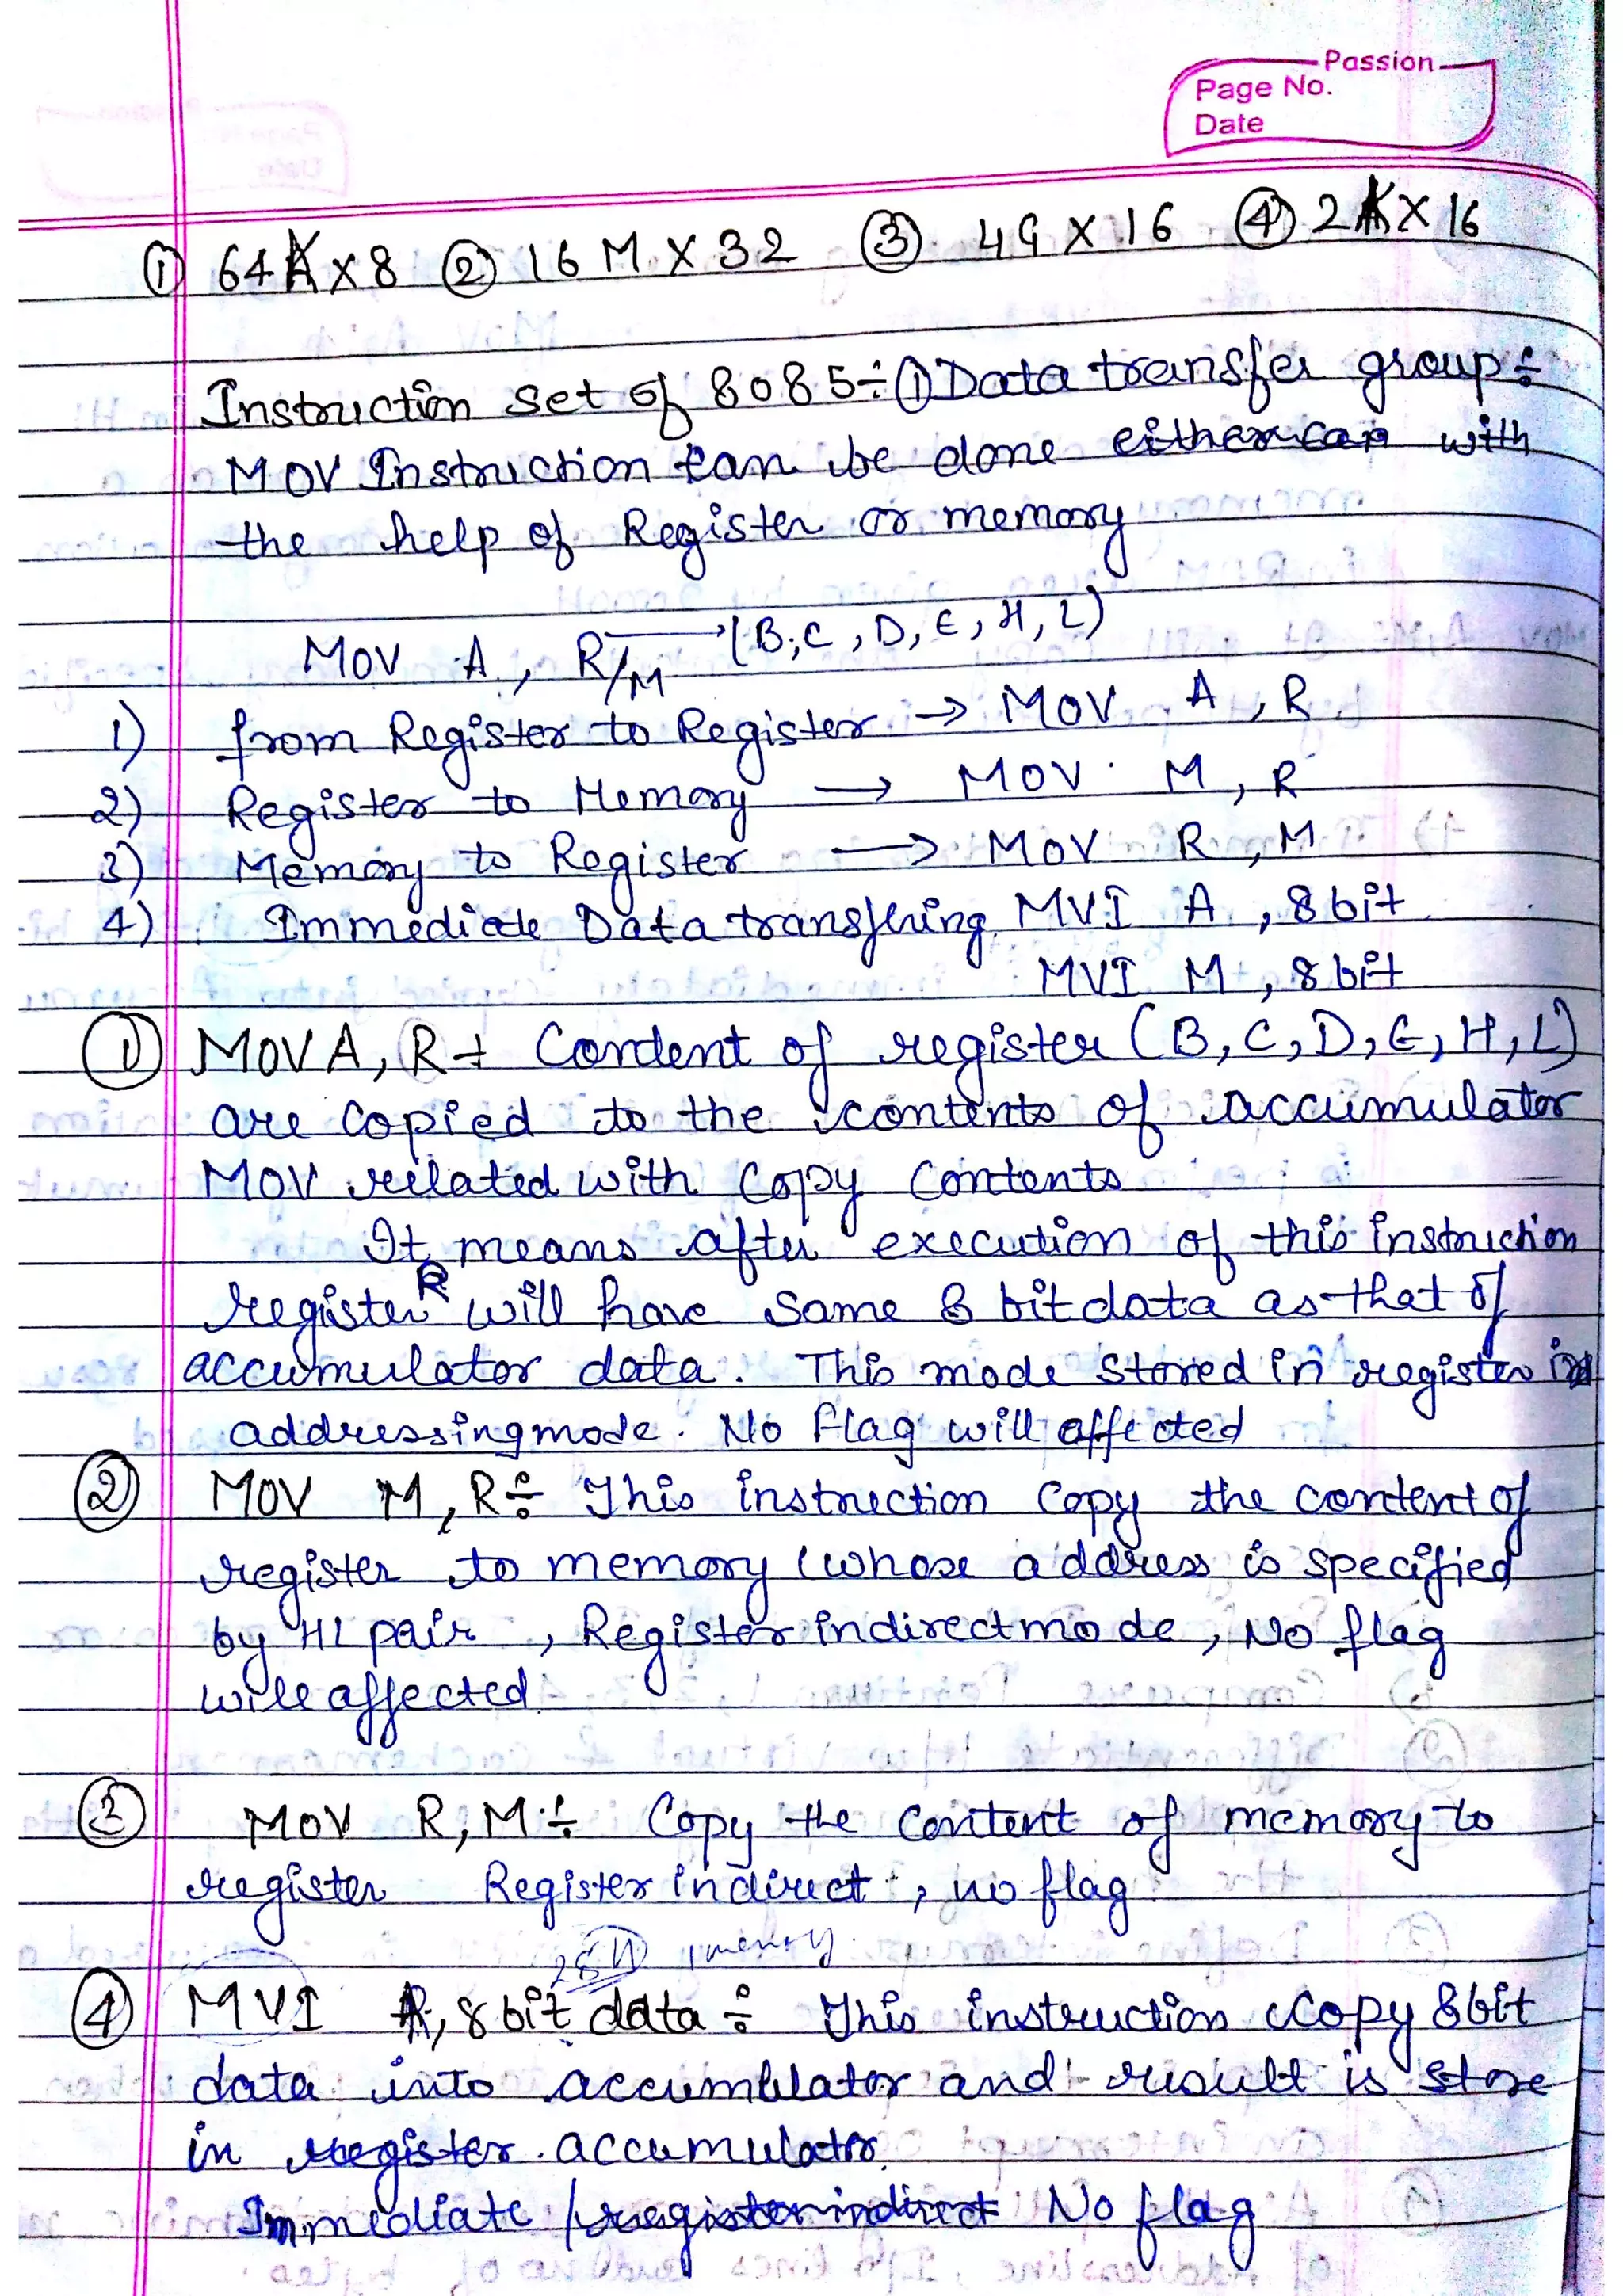 Passion
Page No.
Date
① 64K x 8 ② 16 M X 32 ③ 4G X 16 ④ 2K X 16
Instruction set of 8085÷ ① Data transfer group÷
MOV Instruction can be done either can with
the help of Register or memory
MOV A, R/M → (B, C, D, E, H, L)
1) from Register to Register → MOV A, R
2) Register to Memory → MOV M, R
3) Memory to Register → MOV R, M
4) Immediate Data transfering MVI A, 8 bit
MVI M, 8 bit
① MOV A, R÷ Content of register (B, C, D, E, H, L)
are copied to the contents of accumulator
MOV related with copy contents
It means after execution of this instruction
register R will have same 8 bit data as that of
accumulator data. This mode stored in register
addressing mode. No flag will affected
② MOV M, R÷ This instruction copy the content of
register to memory (whose address is specified
by HL pair, Register indirect mode, No flag
will affected
③ MOV R, M÷ Copy the content of memory to
register Register indirect, no flag
memory
④ MVI A, 8 bit data÷ This instruction copy 8 bit
data into accumblator and result is store
in register accumulator.
Immediate / register indirect No flag